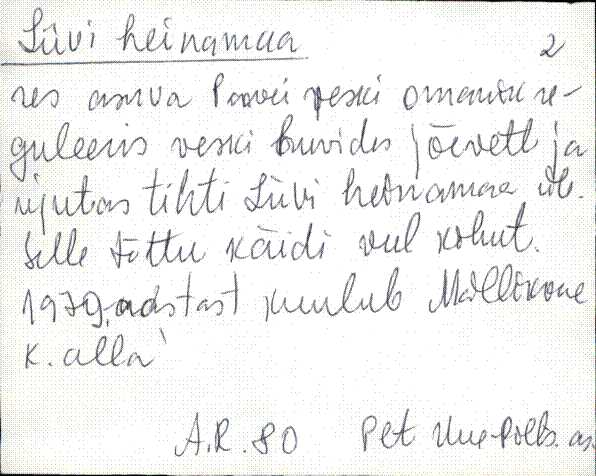 Süvi heinamaa 2
res asuva Paavei veski omanik re-
guleeris veski huvides jõevett ja
ujutas tihti Süvi heinamaa üle.
Selle tõttu käidi vel kohut.
1979. aastast kuulub
k. alla
A.R. 80 Pet